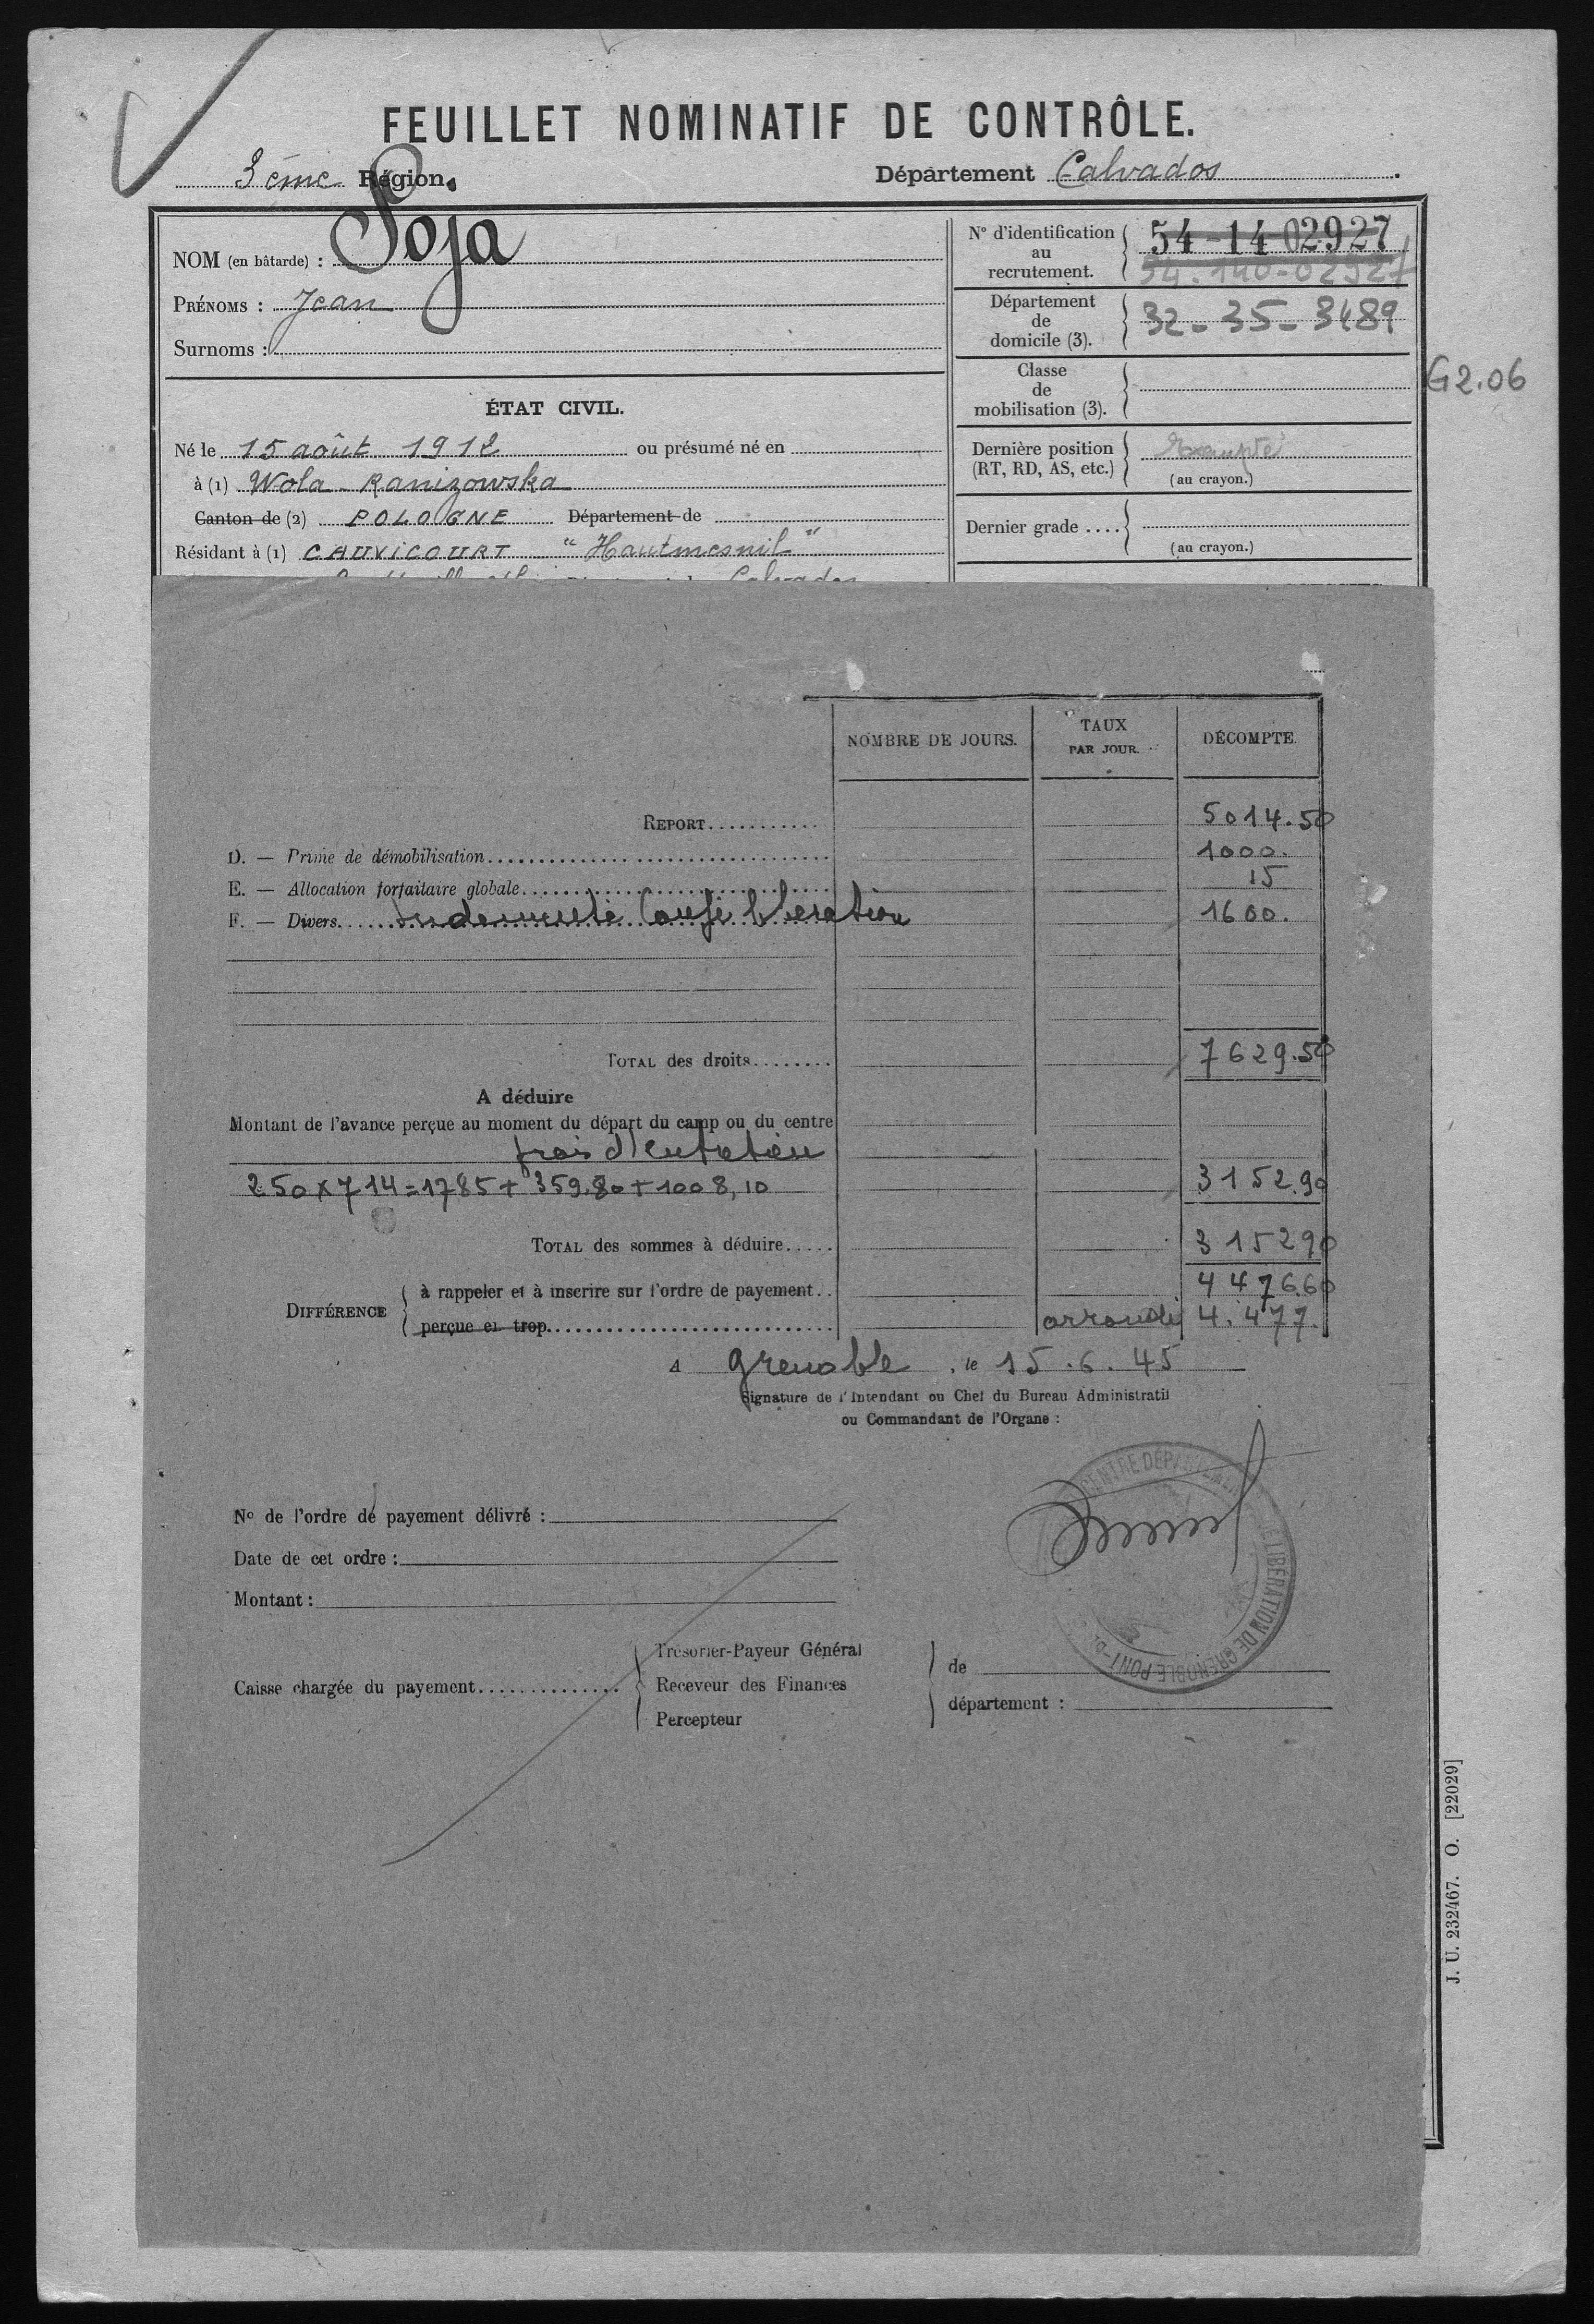 FEUILLET NOMINATIF DE CONTRÔLE.
3ème Région.
Département Calvados.
NOM (en bâtarde) : Soja
PRÉNOMS : Jean
Surnoms :
ÉTAT CIVIL.
Né le 15 août 1912 ou présumé né en
à (1) Wola Ranizowska
Canton de (2) POLOGNE Département de
Résidant à (1) CAUVICOURT "Hautmesnil"
Calvados
N° d'identification au recrutement. 54-14-02927
54-140-02927
Département de domicile (3). 32-35-3489
Classe de mobilisation (3).
G2.06
Dernière position (RT, RD, AS, etc.) Exempté
(au crayon.)
Dernier grade ....
(au crayon.)
NOMBRE DE JOURS. TAUX PAR JOUR. DÉCOMPTE.
REPORT........... 5014.50
D. — Prime de démobilisation 1000.
E. — Allocation forfaitaire globale 15
F. — Divers. Indemnité Congé libération 1600.
TOTAL des droits........ 7629.50
A déduire
Montant de l'avance perçue au moment du départ du camp ou du centre
frais d'entretien
2.50 x 714 = 1785 + 359.80 + 1008,10 3152.90
TOTAL des sommes à déduire..... 3152 90
DIFFÉRENCE
à rappeler et à inscrire sur l'ordre de payement.. 4476.60
perçue en trop arrondi 4.477.
A Grenoble, le 15.6.45
Signature de l'Intendant ou Chef du Bureau Administratif
ou Commandant de l'Organe :
N° de l'ordre de payement délivré :
Date de cet ordre :
Montant :
Caisse chargée du payement..............
Trésorier-Payeur Général
Receveur des Finances
Percepteur
de
département :
CENTRE DÉPARTEMENTAL DE LIBÉRATION DE GRENOBLE PONT-D
J. U. 232467. O. [22029]